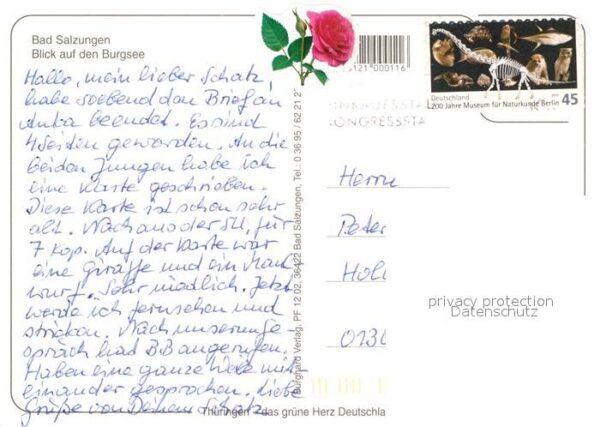 Bad Salzungen
Blick auf den Burgsee
Hallo, mein lieber Schatz,
habe soebend den Brief an
Anka beendet. Es sind
4 Seiten geworden. An die
beiden Jungen habe ich
eine Karte geschrieben.
Diese Karte ist schon sehr
alt. Noch aus der SU, für
7 Kop. Auf der Karte war
eine Giraffe und ein Maul
wurf. Sehr niedlich. Jetzt
werde ich fernsehen und
stricken. Nach unserem Ge-
spräch had BB angerufen.
Haben eine ganze Weile mit-
einander gesprochen. Liebe
Grüße von Deinem Schatz
Thüringen - das grüne Herz Deutschla
Burghard Verlag, PF 12 02, 36422 Bad Salzungen, Tel.: 0 36 95 / 62 21 2
5121 000116
Deutschland
200 Jahre Museum für Naturkunde Berlin
45
INKAUFSSTA
KONGRESSSTA
Herrn
Peter
Holl
0136
privacy protection
Datenschutz